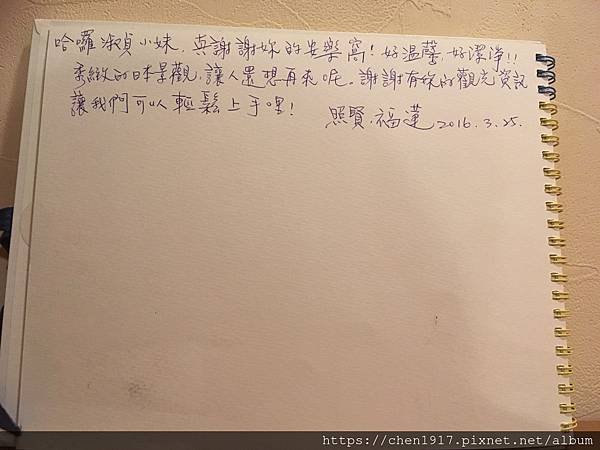 哈囉淑貞小妹，真謝謝妳的安樂窩！好溫馨，好潔淨!!
柔緻的日本景觀，讓人還想再來呢。謝謝有妳的觀光資訊
讓我們可以輕鬆上手哩！ 照賢．福蓮 2016.3.25.
https://chen1917.pixnet.net/album